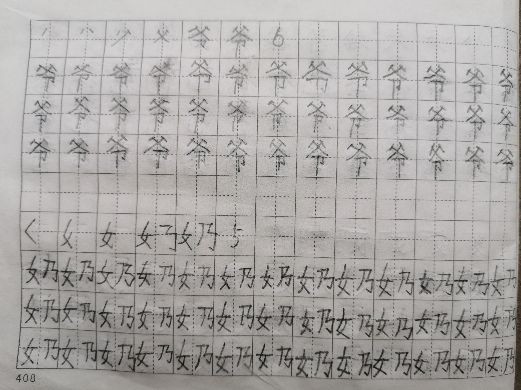 丿 八 父 爷 爷 6
爷 爷 爷 爷 爷 爷 爷 爷 爷 爷 爷 爷 爷
爷 爷 爷 爷 爷 爷 爷 爷 爷 爷 爷 爷 爷
爷 爷 爷 爷 爷 爷 爷 爷 爷 爷 爷 爷 爷
く 女 女 奶 5
奶 奶 奶 奶 奶 奶 奶 奶 奶 奶 奶 奶 奶
奶 奶 奶 奶 奶 奶 奶 奶 奶 奶 奶 奶 奶
奶 奶 奶 奶 奶 奶 奶 奶 奶 奶 奶 奶 奶
408